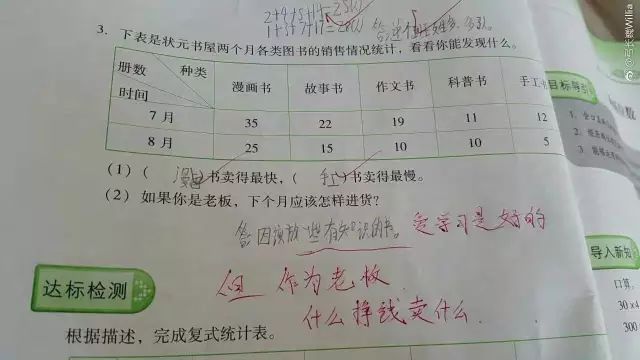 2+4+5+14=25(人)
1+3+7+17=28(人)
3. 下表是状元书屋两个月各类图书的销售情况统计,看看你能发现什么。
册数 种类 时间 漫画书 故事书 作文书 科普书 手工书
7月 35 22 19 11 12
8月 25 15 10 10 5
(1)(漫画)书卖得最快,(手工)书卖得最慢。
(2)如果你是老板,下个月应该怎样进货?
答:因该放些有知识的书。
爱学习是好的
但 作为老板
什么挣钱卖什么.
达标检测
根据描述,完成复式统计表。
目标导引
导入新知
口算。
30×4
300